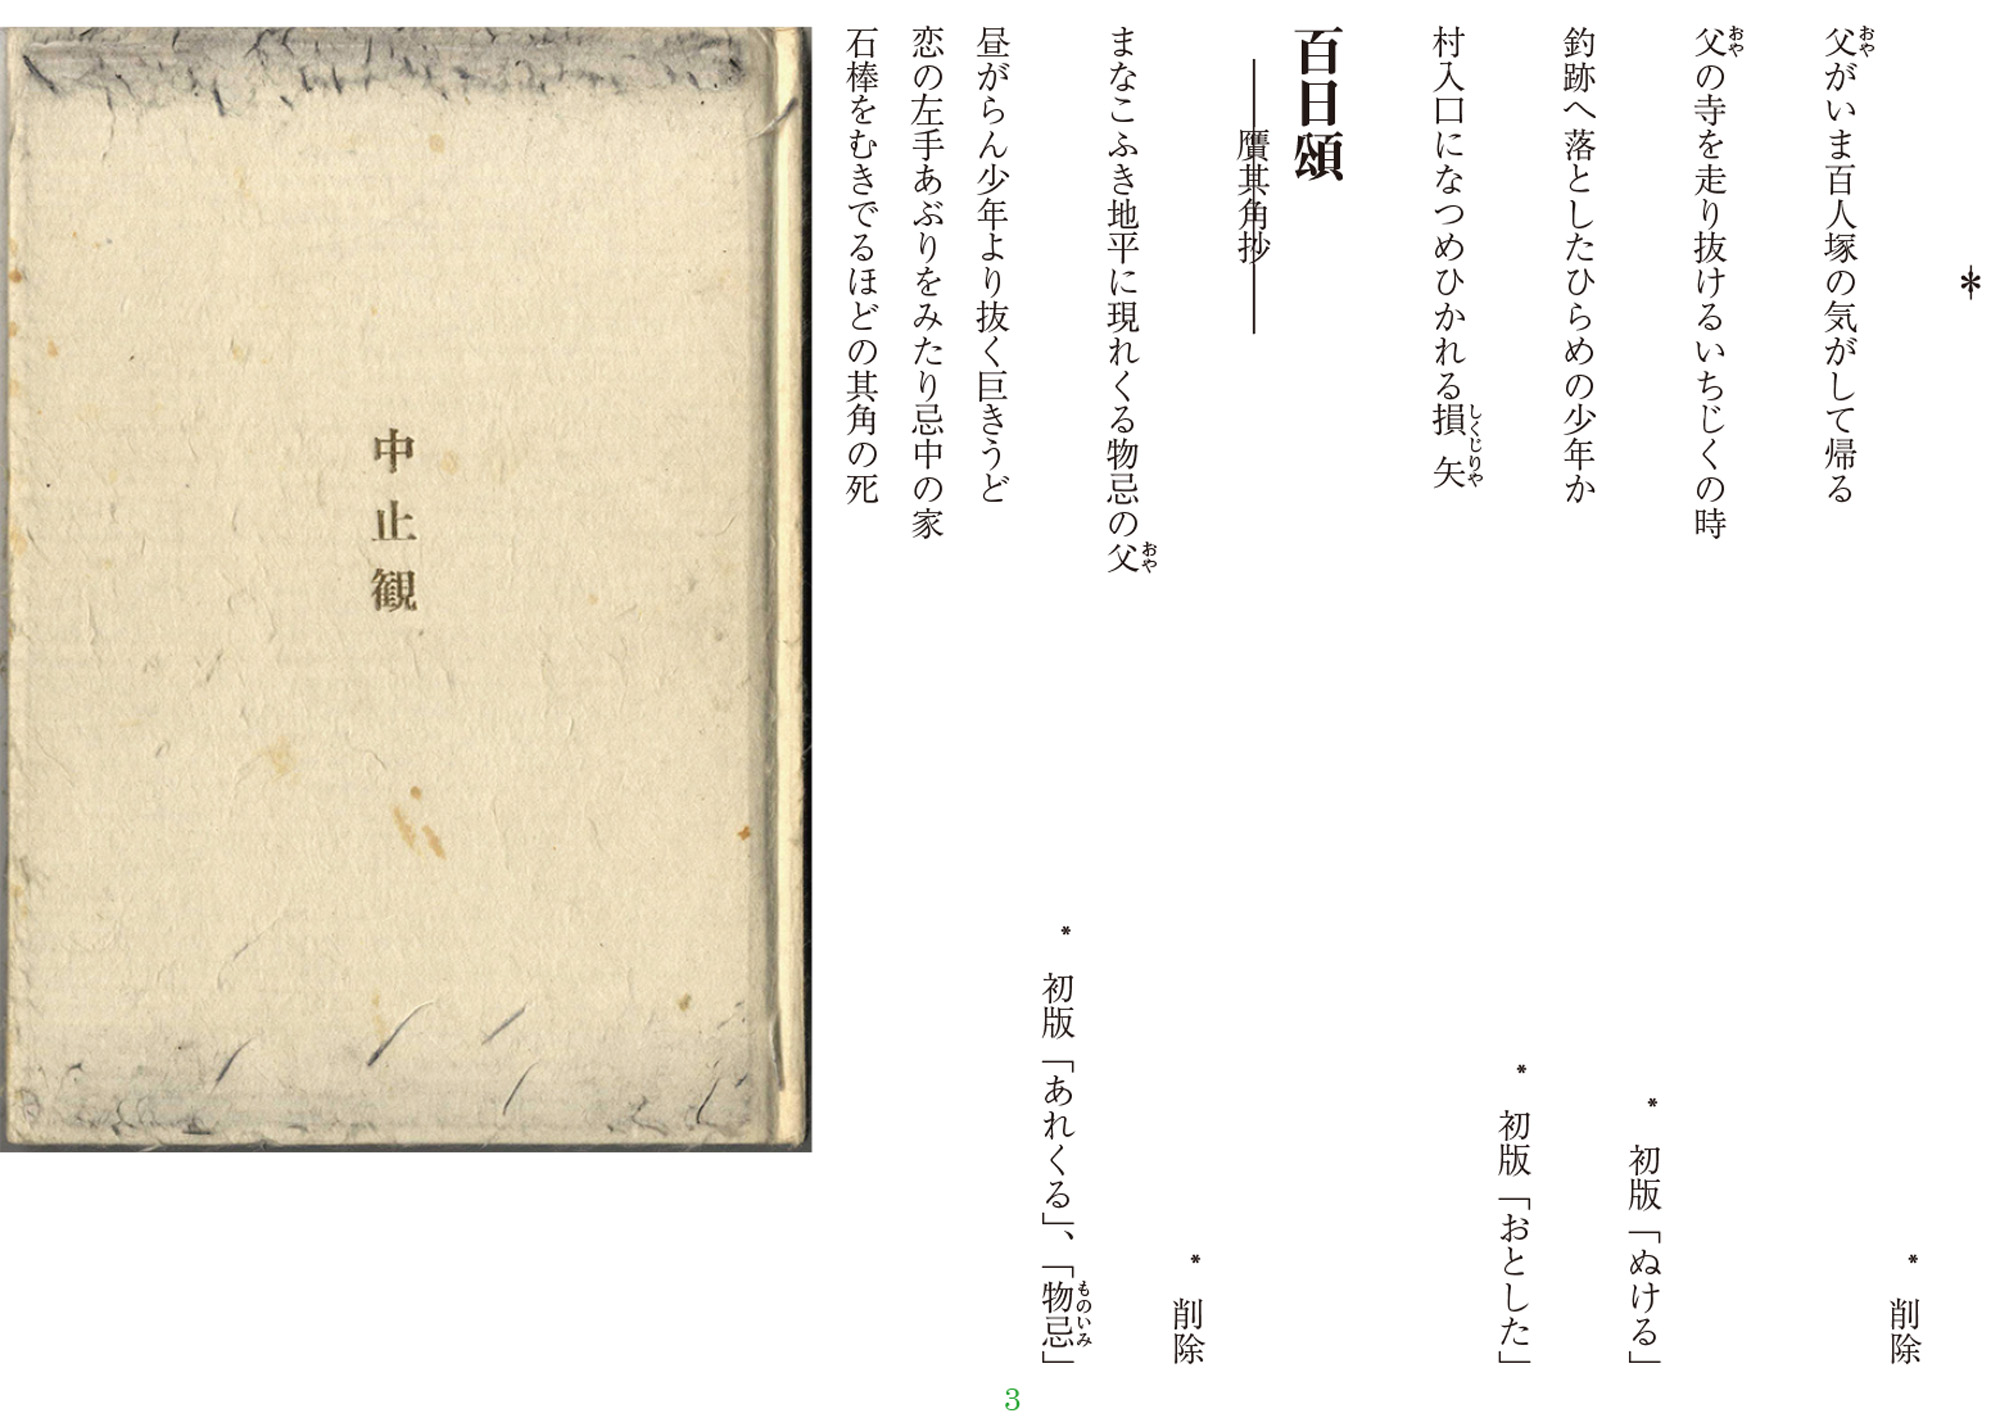 ＊
＊　削除
父がいま百人塚の気がして帰る
おや
父の寺を走り抜けるいちじくの時
おや
＊　初版「ぬける」
釣跡へ落としたひらめの少年か
＊　初版「おとした」
村入口になつめひかれる損矢
しくじりや
百日頌
――贋其角抄――
＊　削除
まなこふき地平に現れくる物忌の父
おや
＊　初版「あれくる」、「物忌」
ものいみ
昼がらん少年より抜く巨きうど
恋の左手あぶりをみたり忌中の家
石棒をむきでるほどの其角の死
中止観
3